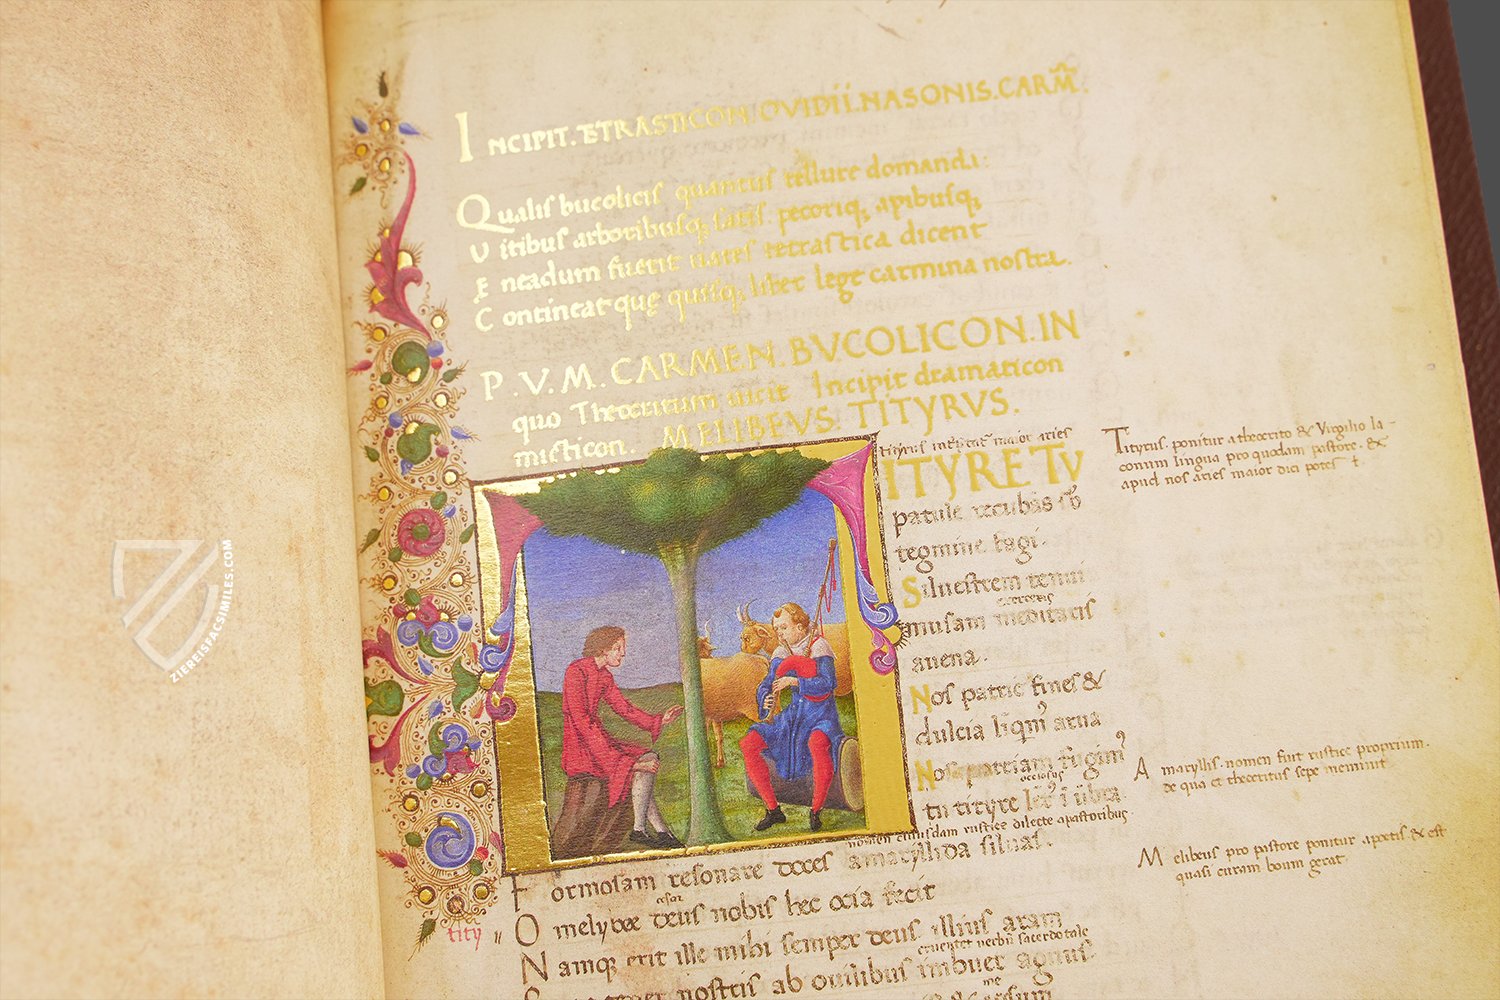 INCIPIT. TETRASTICON. OVIDII. NASONIS. CARM̄.
Qualis bucolicis quantus tellure domandi:
Uitibus arboribusq; satis pecoriq; apibusq;
Eneadum fuerit uates tetrastica dicent
Contineat quę quisq; liber lege carmina nostra.
P. V. M. CARMEN. BVCOLICON. IN
quo Theocritum Incipit dramaticon
misticon. MELIBEVS TITYRVS.
tityrus maior aries
ITYRE TV
patule recubās sb̄
tegmine fagi.
Siluestrem tenui
musam meditaris
auena.
Nos patrie fines &
dulcia liqm̄ arua
Nos patriam fugim⁹
ociosus
tu tityre
nomen cuiusdam rustice dilecte a pastoribus
Formosam resonare doces amaryllida siluas.
cesar
O melybee deus nobis hec ocia fecit
tity
Namq; erit ille mihi semper deus illius aram
sacerdotale
nostris ab ouilibus imbuet agnus.
me
Tityrus. ponitur a theocrito & Virgilio la-
conum lingua pro quodam pastore. &
apud nos aries maior dici potest.
Amaryllis. nomen fuit rustice proprium.
de qua et theocritus sepe meminit
Melibeus pro pastore ponitur & est
quasi curam boum gerat
ZIEREISFACSIMILES.COM